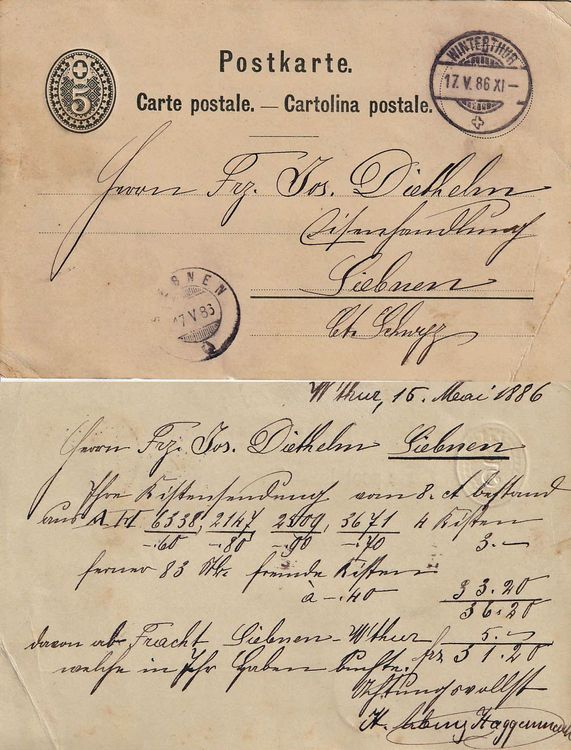 Postkarte.
Carte postale. — Cartolina postale.
5
WINTERTHUR
17. V. 86 XI –
Herrn Frz. Jos. Diethelm
Eisenhandlung
Siebnen
Ct. Schwyz
SIEBNEN
17 V 86
W'thur, 15. Mai 1886
Herrn Frz. Jos. Diethelm Siebnen
Ihre Kistensendung vom 8. ct bestand
aus A H 6338, 2147, 2909, 3671 4 Kisten
–.60 –.80 –.90 –.70 3.–
ferner 83 Stk. fremde Kisten
à –.40 33.20
36.20
davon ab Fracht Siebnen-W'thur 5.–
welche in Ihr Haben buchte. frs 31.20
Achtungsvollst
Haggenmacher